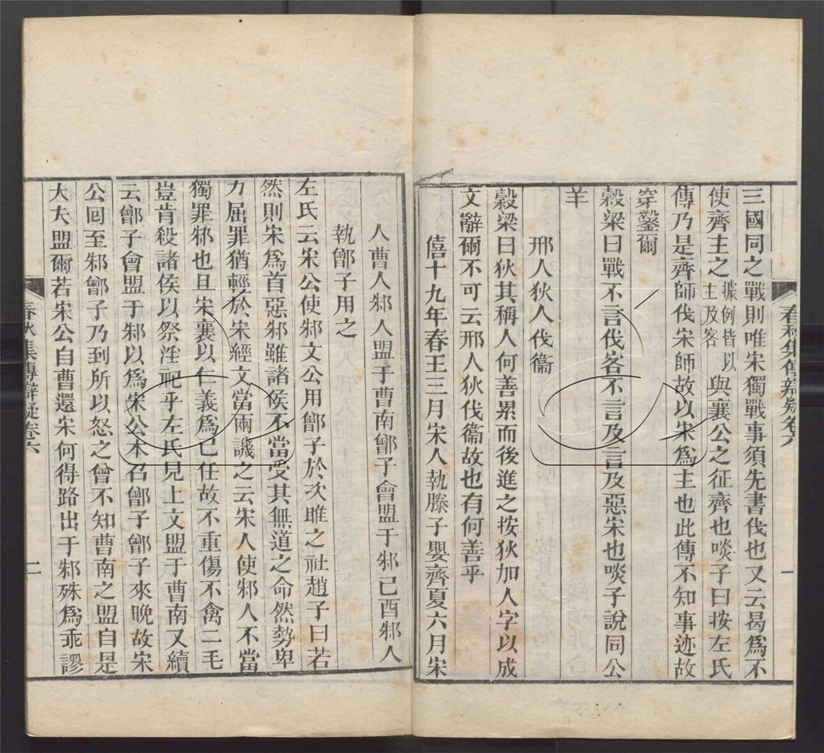 三國同之戰則唯宋獨戰事須先書伐也又云曷為不
使齊主之據例皆以主及客與襄公之征齊也啖子曰按左氏
傳乃是齊師伐宋師故以宋為主也此傳不知事迹故
穿鑿爾
穀梁曰戰不言伐客不言及言及惡宋也啖子說同公
羊
邢人狄人伐衞
穀梁曰狄其稱人何善累而後進之按狄加人字以成
文辭爾不可云邢人狄伐衞故也有何善乎
僖十九年春王三月宋人執滕子嬰齊夏六月宋
春秋集傳辨疑卷六
一
人曹人邾人盟于曹南鄫子會盟于邾己酉邾人
執鄫子用之
左氏云宋公使邾文公用鄫子於次睢之社趙子曰若
然則宋為首惡邾雖諸侯不當受其無道之命然勢卑
力屈罪猶輕於宋經文當兩譏之云宋人使邾人不當
獨罪邾也且宋襄以仁義為己任故不重傷不禽二毛
豈肯殺諸侯以祭淫祀乎左氏見上文盟于曹南又續
云鄫子會盟于邾以為宋公本召鄫子鄫子來晚故宋
公回至邾鄫子乃到所以怒之曾不知曹南之盟自是
大夫盟爾若宋公自曹還宋何得路出于邾殊為乖謬
春秋集傳辨疑卷六
二